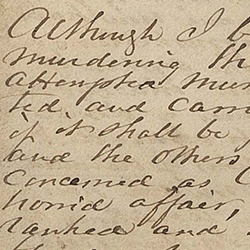 Although I b
murdering th
attempted mur
ted, and carr
if it shall be
and the others
concerned as
horrid affair,
ranked and